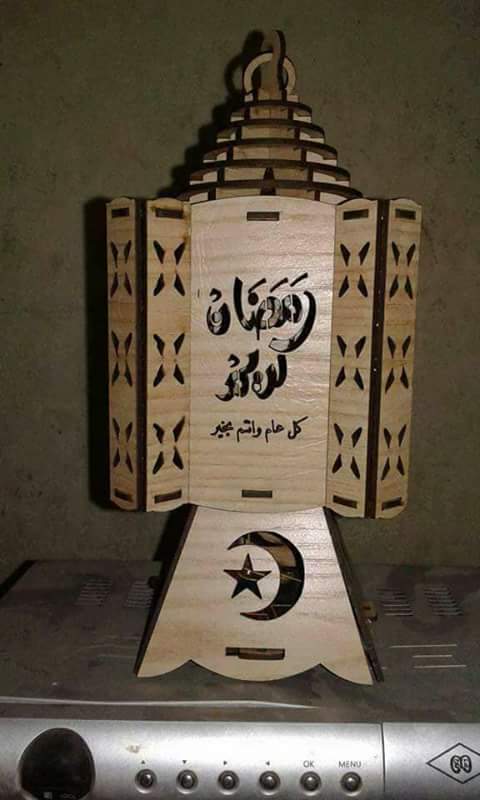 رمضان
كريم
كل عام وانتم بخير
OK MENU